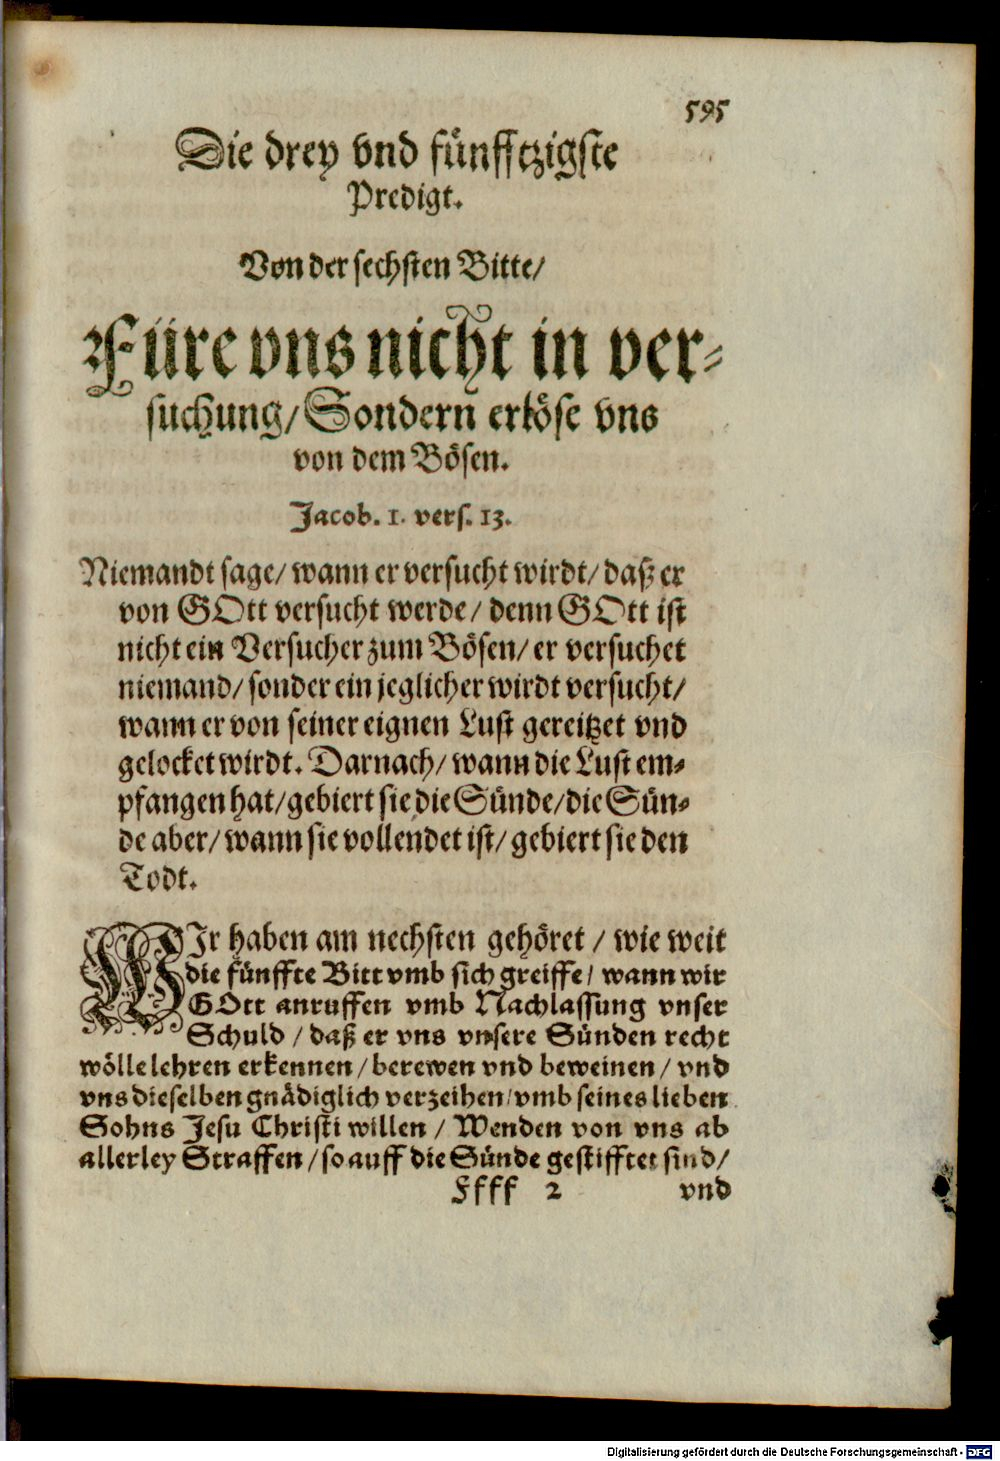 595
Die drey vnd fünfftzigste
Predigt.
Von der sechsten Bitte/
Füre vns nicht in ver-
suchung/ Sondern erlöse vns
von dem Bösen.
Jacob. 1. vers. 13.
Niemandt sage/ wann er versucht wirdt/ daß er
von GOtt versucht werde/ denn GOtt ist
nicht ein Versucher zum Bösen/ er versuchet
niemand/ sonder ein jeglicher wirdt versucht/
wann er von seiner eignen Lust gereitzet vnd
gelocket wirdt. Darnach/ wann die Lust em-
pfangen hat/ gebiert sie die Sünde/ die Sün-
de aber/ wann sie vollendet ist/ gebiert sie den
Todt.
WIr haben am nechsten gehöret / wie weit
die fünffte Bitt vmb sich greiffe/ wann wir
GOtt anruffen vmb Nachlassung vnser
Schuld / daß er vns vnsere Sünden recht
wölle lehren erkennen / berewen vnd beweinen / vnd
vns dieselben gnädiglich verzeihen/ vmb seines lieben
Sohns Jesu Christi willen / Wenden von vns ab
allerley Straffen / so auff die Sünde gestifftet sind/
Ffff 2 vnd
Digitalisierung gefördert durch die Deutsche Forschungsgemeinschaft - DFG